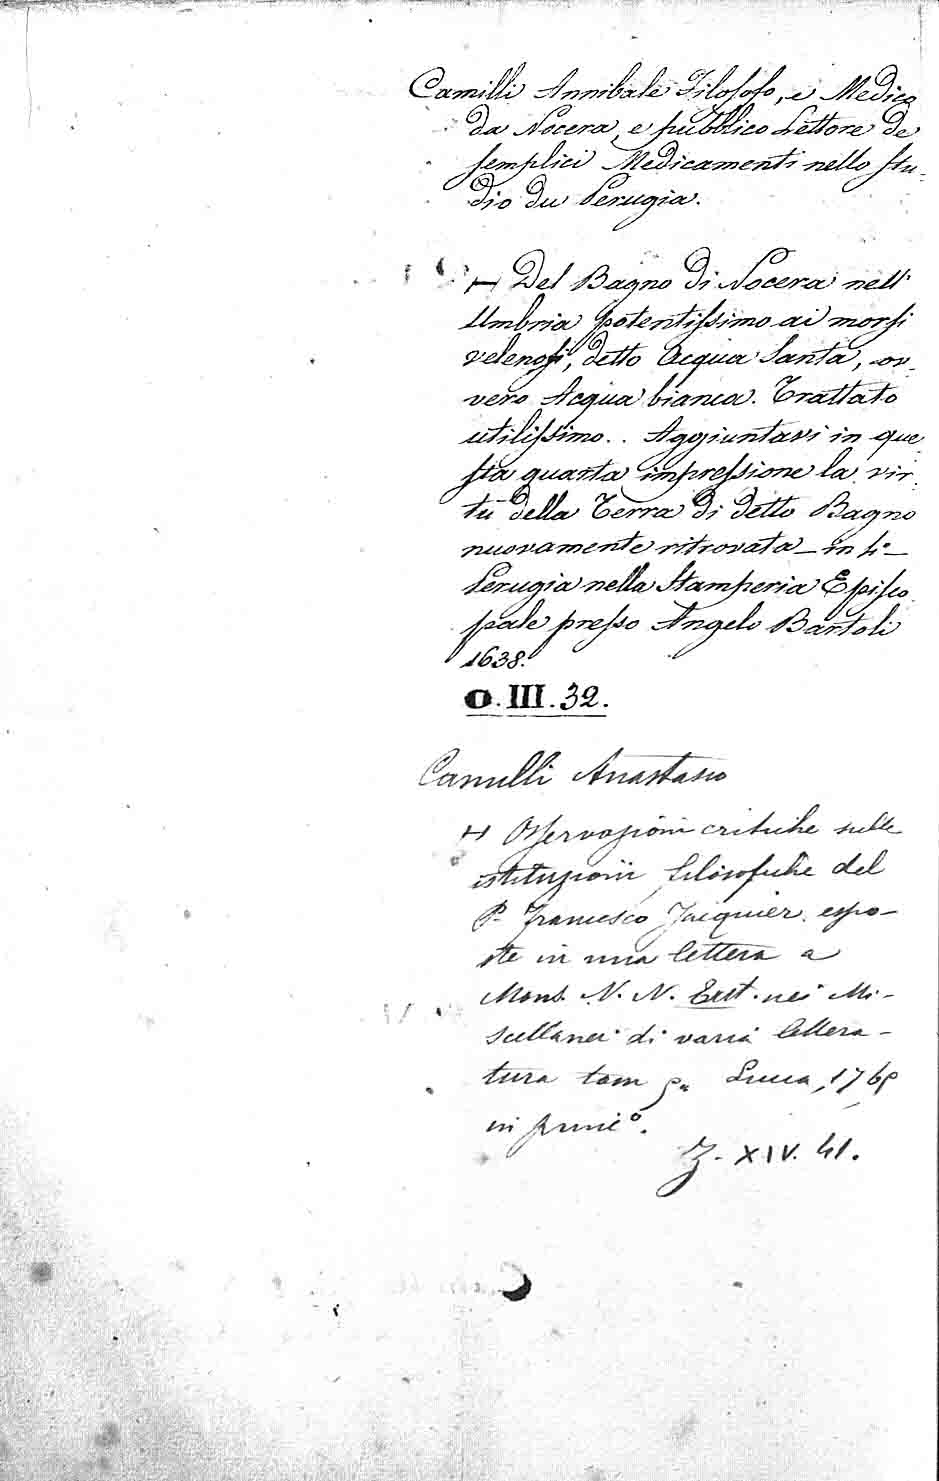 Camilli Annibale Filosofo, e Medico
da Nocera, e pubblico Lettore de
semplici Medicamenti nello stu-
dio du Perugia.
Del Bagno di Nocera nell'
Umbria potentissimo ai morsi
velenosi, detto Acqua Santa, ov-
vero Acqua bianca. Trattato
utilissimo.. Aggiuntavi in que
sta quarta impressione la vir-
tù della Terra di detto Bagno
nuovamente ritrovata - in 4° -
Perugia nella Stamperia Episco
pale presso Angelo Bartoli
1638.
O. III. 32.
Camilli Anastasio
Osservazioni critiche sulle
istituzioni filosofiche del
P. Francesco Jacquier. espo-
ste in una lettera a
Mons. N. N. Exst. nei Mi-
scellanei di varia lettera-
tura tom Lucca, 176
in princ°.
Z. XIV. 41.